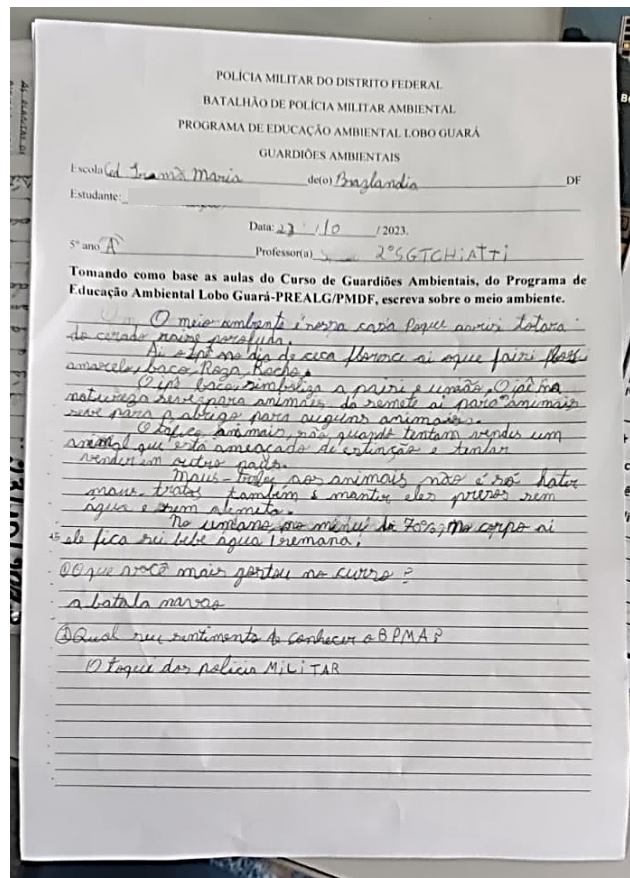 POLÍCIA MILITAR DO DISTRITO FEDERAL
BATALHÃO DE POLÍCIA MILITAR AMBIENTAL
PROGRAMA DE EDUCAÇÃO AMBIENTAL LOBO GUARÁ
GUARDIÕES AMBIENTAIS
Escola Irmã Maria de(o) Brazlandia DF
Estudante:
Data: /10 /2023.
5º ano A Professor(a) 2º SGT CHiATTi
Tomando como base as aulas do Curso de Guardiões Ambientais, do Programa de
Educação Ambiental Lobo Guará-PREALG/PMDF, escreva sobre o meio ambiente.
O meio ambiente é nossa casa Poque
do cerado raise parofuda.
Ai o ipê no dia de ceca floresce ai oque
amarelo, baco, Roza, Rocho.
O ipê baco simboliza a e união, O
natureza seve para animais da ai para animais
seve para o abrigo para auguns animaes.
O animais, são quando tentam vender um
animal que está ameaçado de estinção e tentar
vender em outro pais.
Maus-trates aos animais não é só bater
maus tratos também é manter eles presos sem
água e sem alimeto.
No umano no 70%, no corpo ai
15 ele fica bebe água 1 semana.
O que você mais gostou no curso?
a batala navao
Qual seu sentimento conhecer o BPMA?
O toque dos policia MiLiTAR